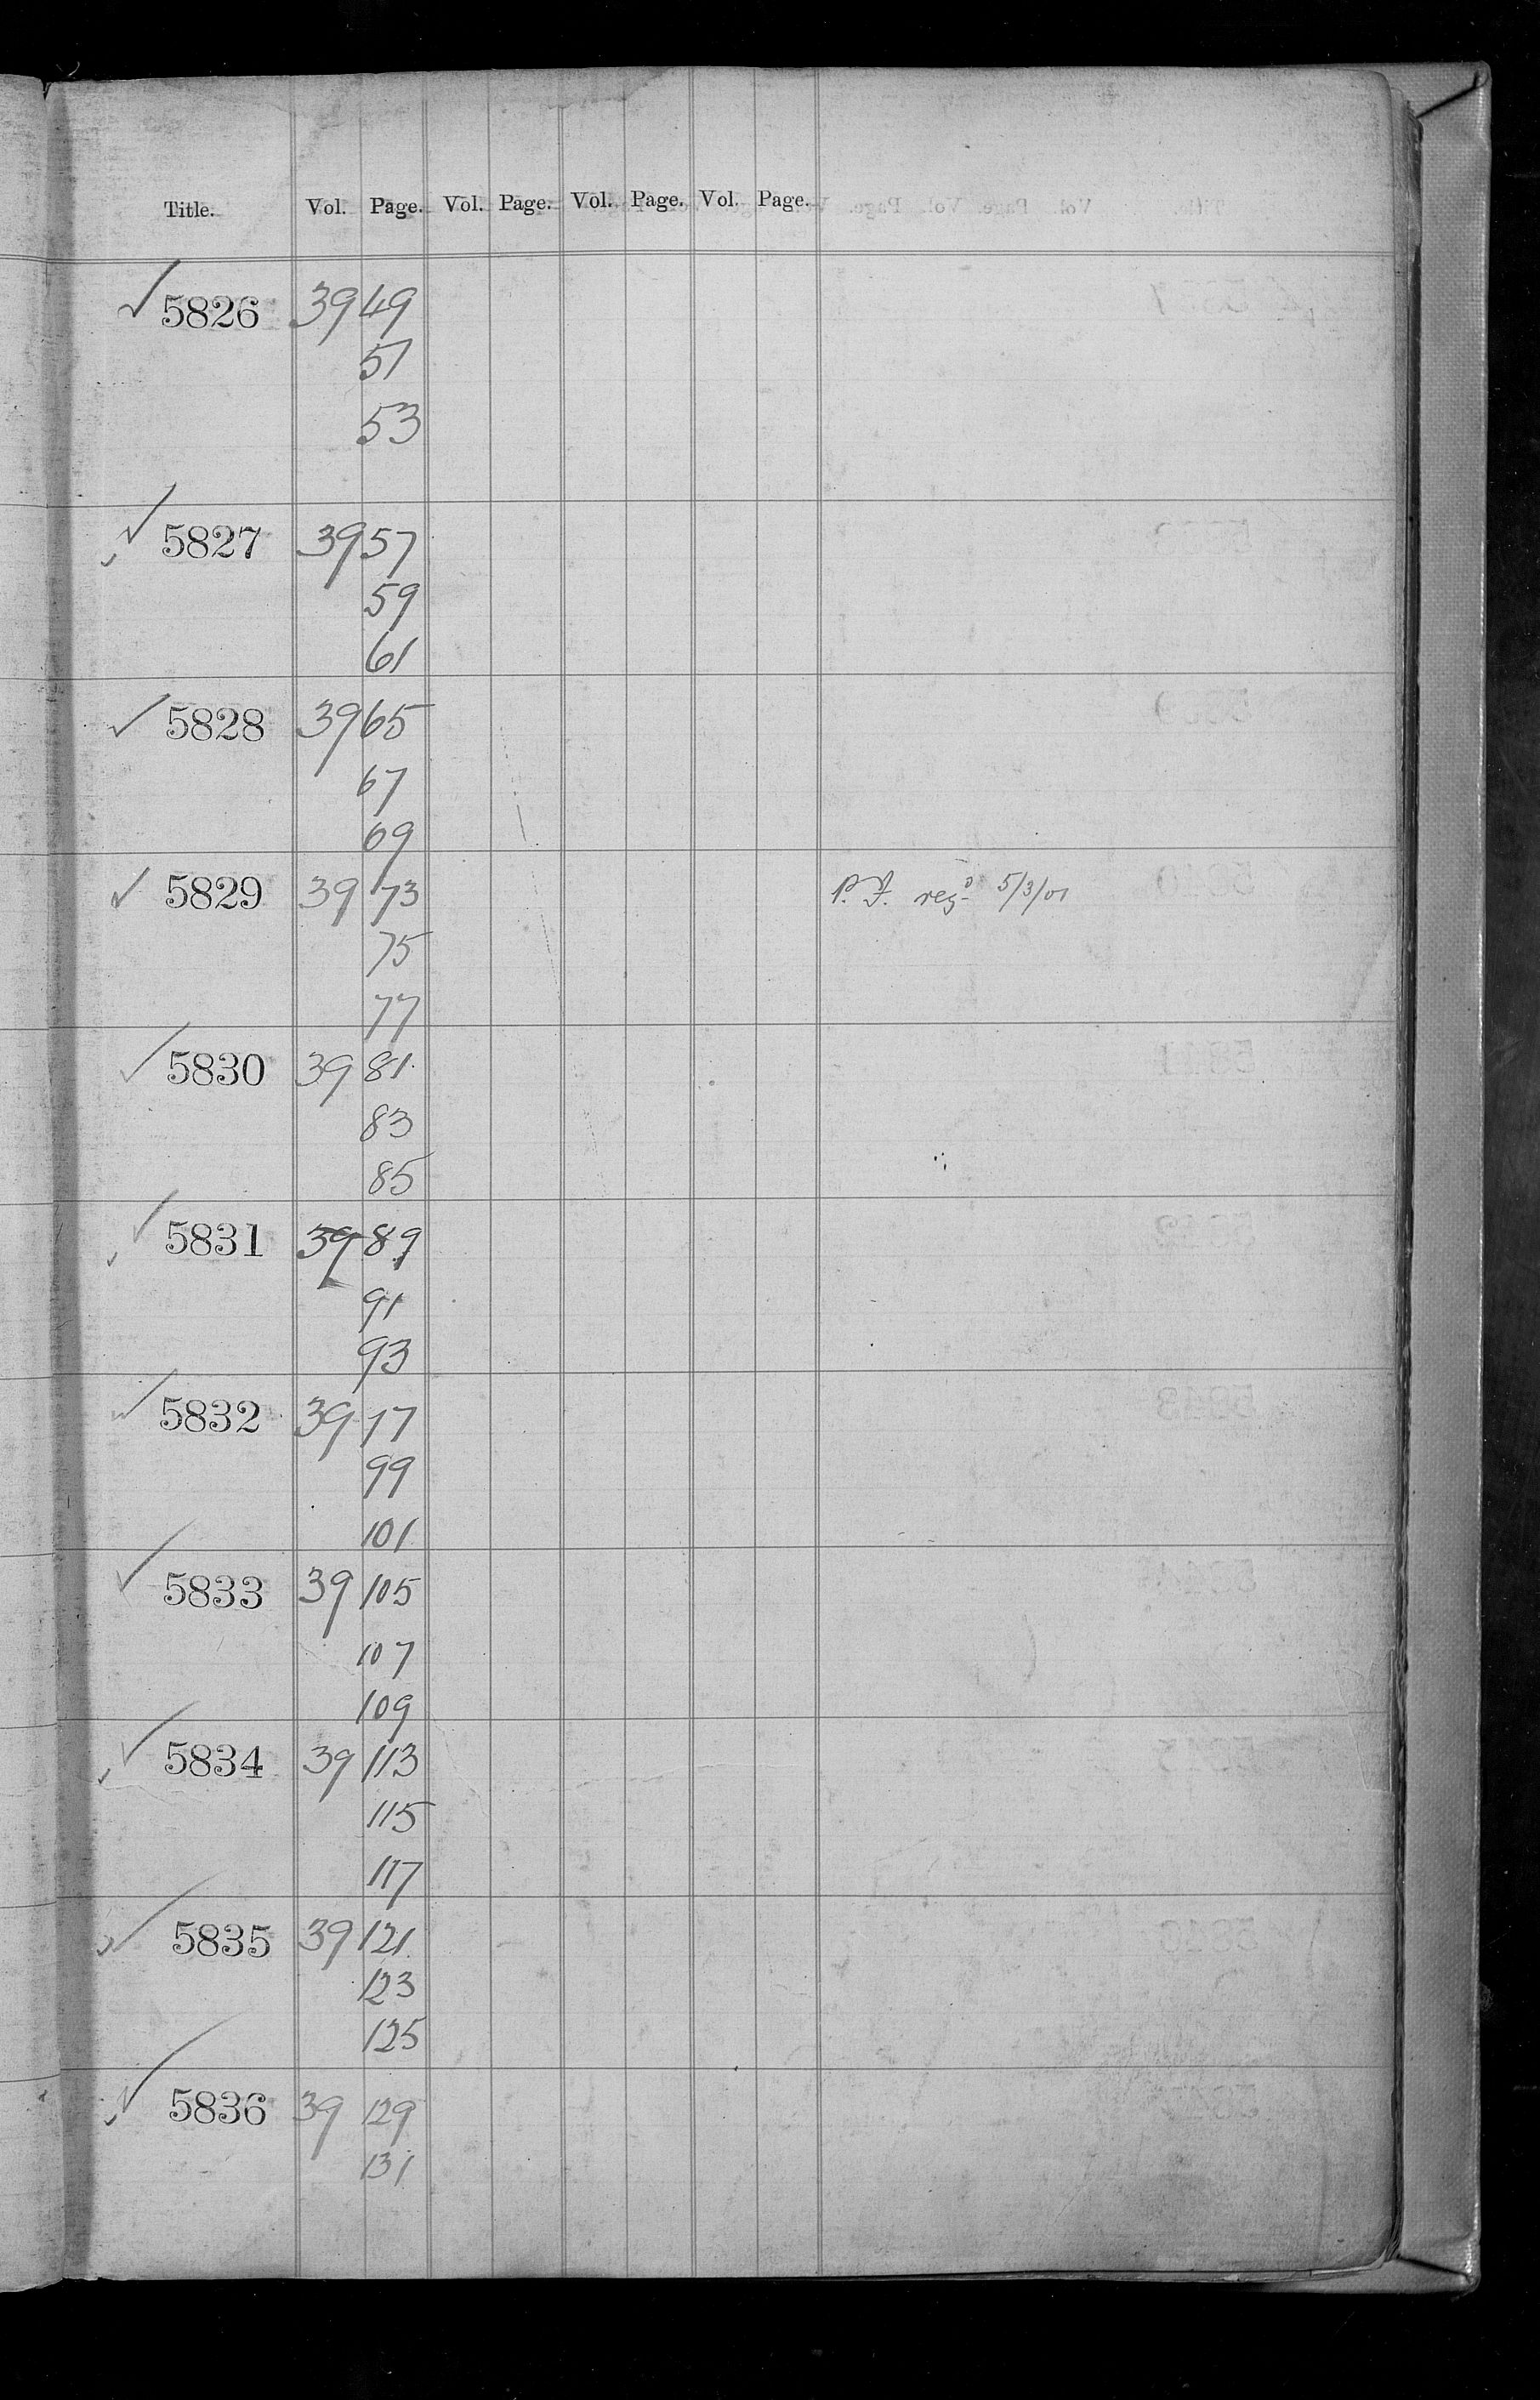 Title. Vol. Page. Vol. Page. Vol. Page. Vol. Page.
✓ 5826 39 49
51
53
✓ 5827 39 57
59
61
✓ 5828 39 65
67
69
✓ 5829 39 73 P.F. reg.d 5/3/01
75
77
✓ 5830 39 81
83
85
✓ 5831 39 89
91
93
✓ 5832 39 97
99
101
✓ 5833 39 105
107
109
✓ 5834 39 113
115
117
✓ 5835 39 121
123
125
✓ 5836 39 129
131